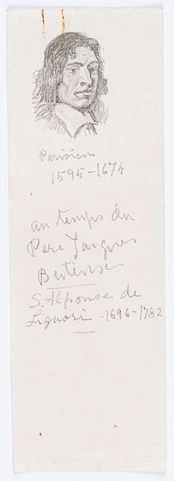 Parisien
1595-1674
au temps du
Pere Jacques
Buteux
S. Alponse de
Liguori - 1696-1782